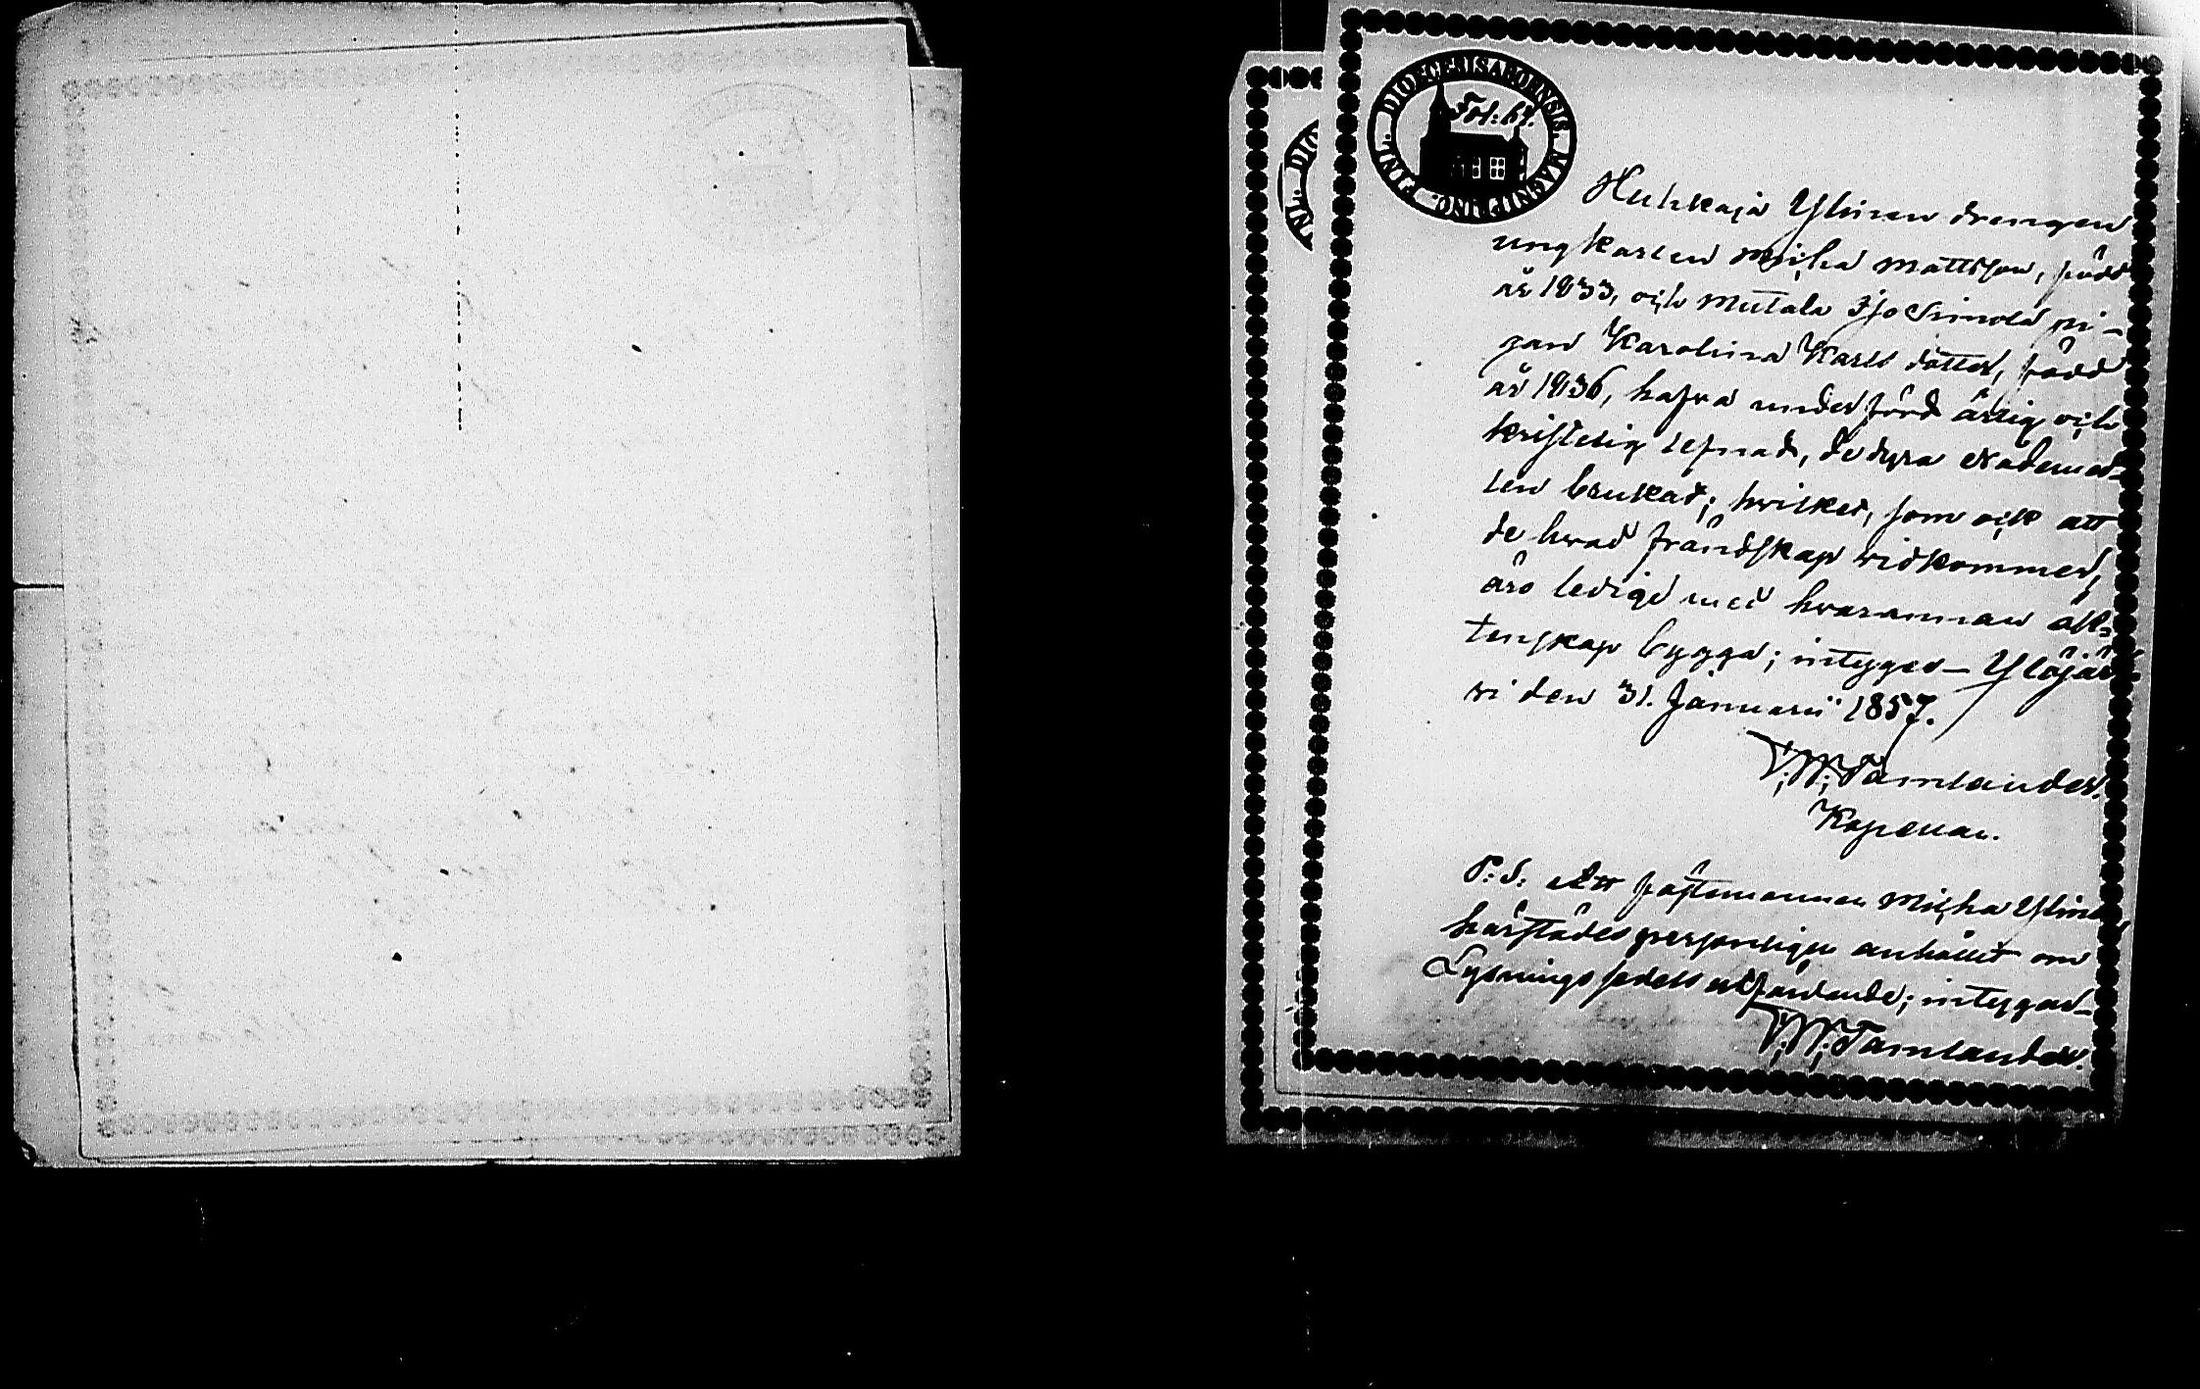 DIOECESIS ABOENSIS. MAGNI PRINC. FINL.
Fol: 61.
Huhkaja Ylinen drengen
ungkarlen Micha Mattsson, född
år 1833, och Mutala Sjo Simola pi-
gan Karolina Karls dotter, född
år 1836, hafva underförd ärlig och
kristelig lefnad, de dyra nådemed-
len brukat; hvilket, som ock att
de hvad frändskap vidkommer,
äro ledige med hvarannan äk-
tenskap bygga; intygas_ Ylöjär-
vi den 31. Januarii 1857.
T: W: Tamlander.
Kapellan.
P. S. Att fästemannen Micha Ylinen
härstädes personligen anhållit om
Lysningssedels utfärdande; intygas_
T: W: Tamlander.